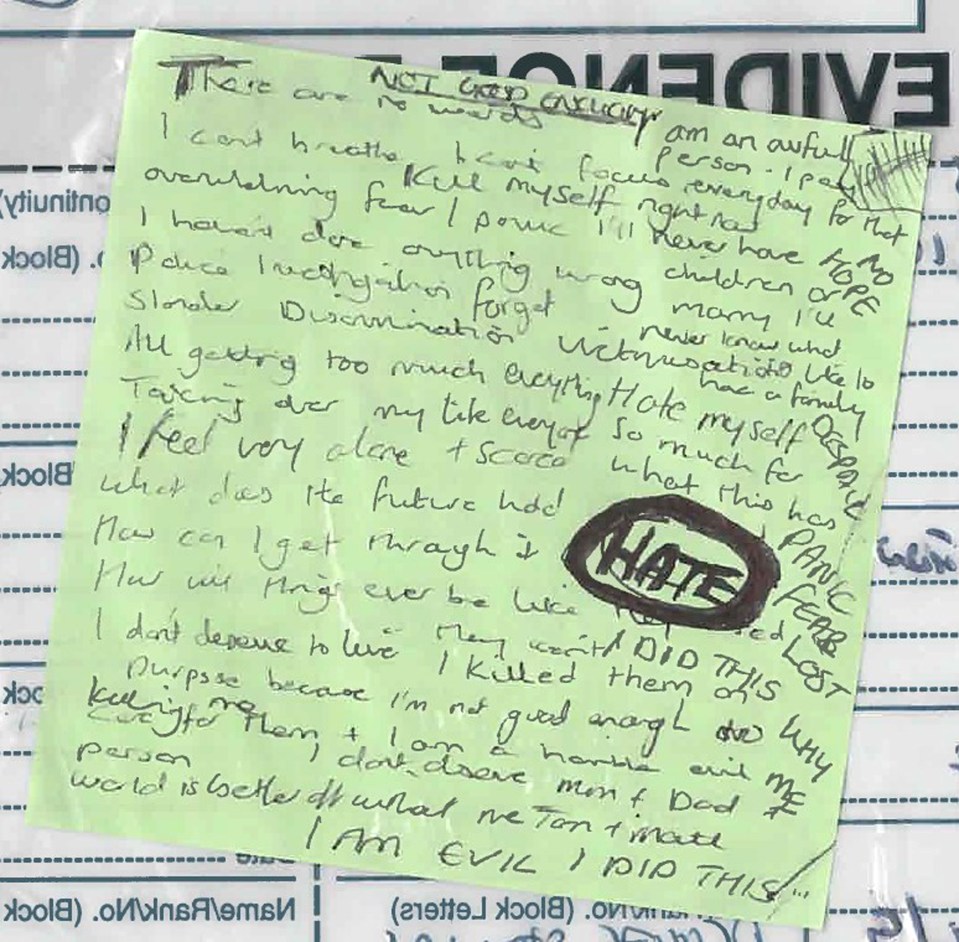 NOT GOOD ENOUGH
There are no words
I can't breathe I can't focus
overwhelming fear I panic
Kill myself right now
I haven't done anything wrong
Police Investigation forget
Slander Discrimination Victimisation
All getting too much everything
Taking over my life everyday
I feel very alone + scared
What does the future hold
How can I get through it
How will things ever be like
I don't deserve to live
I killed them on
purpose because I'm not good enough
to
care for them, + I am a horrible evil
person I don't deserve Mom + Dad
world is better off without me
I AM EVIL I DID THIS
I am an awful
person - I pay
everyday for that
I'll never have
children or
marry I'll
never know what
it's like to
have a family
Hate myself
so much for
what this has
HATE
They won't
I DID THIS
killing me
NO
HOPE
DESPAIR
PANIC
FEAR
LOST
WHY
ME
EVIDENCE
(Block
Block
Name/Rank/No. (Block
/No. (Block Letters)